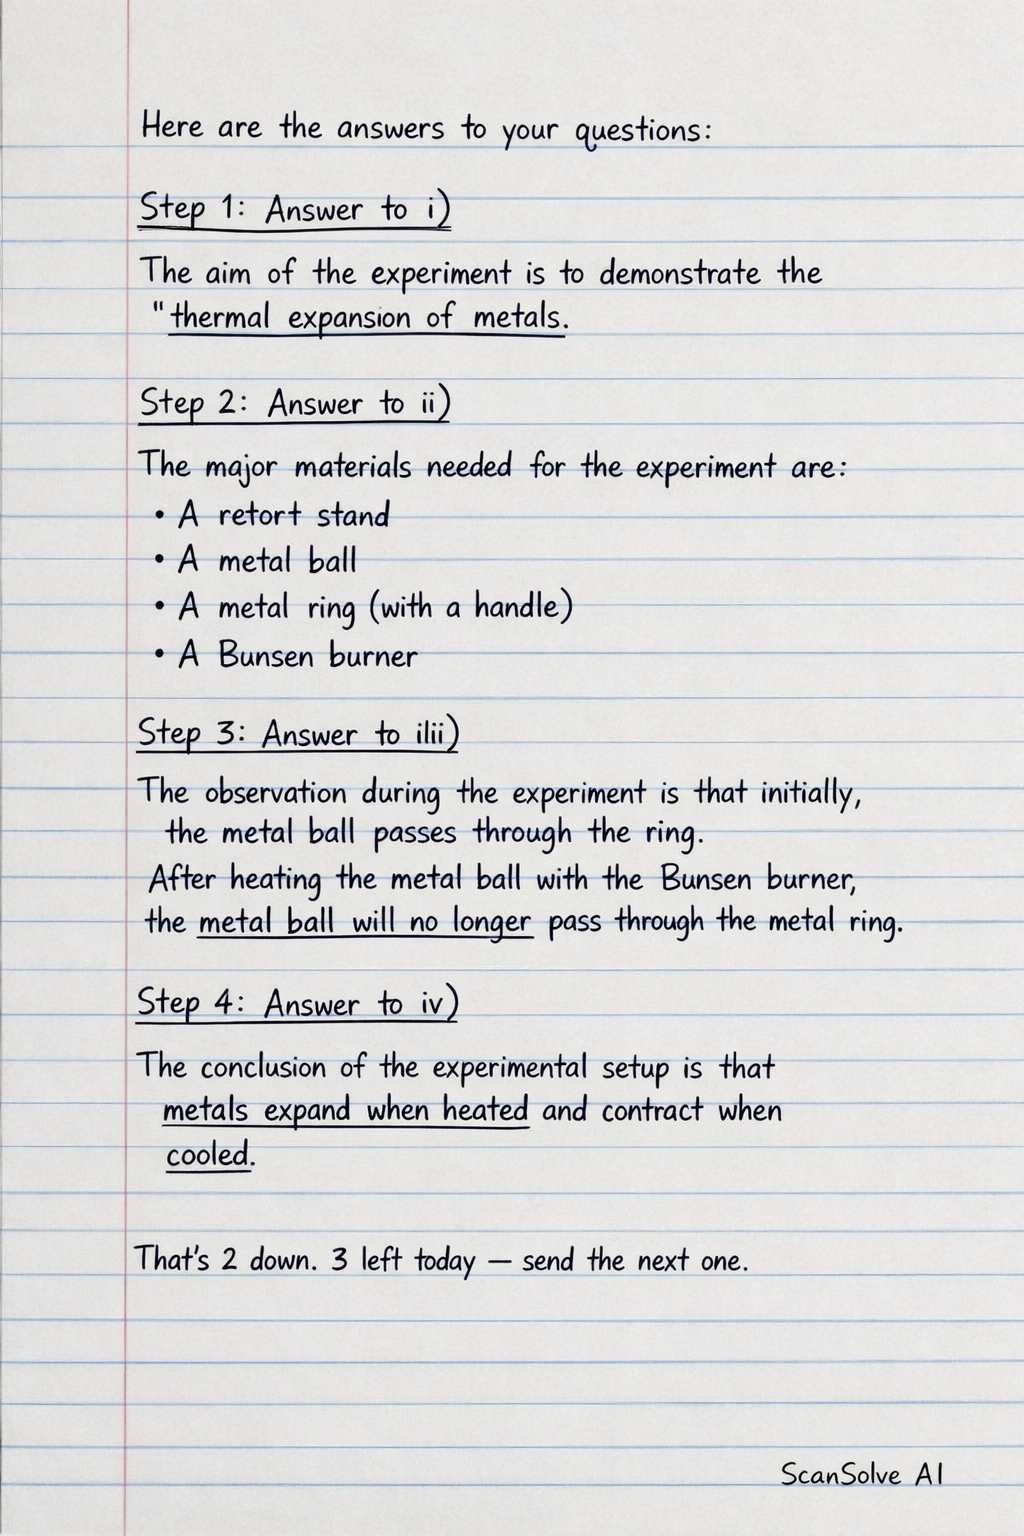 Here are the answers to your questions:
Step 1: Answer to i)
The aim of the experiment is to demonstrate the
"thermal expansion of metals.
Step 2: Answer to ii)
The major materials needed for the experiment are:
• A retort stand
• A metal ball
• A metal ring (with a handle)
• A Bunsen burner
Step 3: Answer to ilii)
The observation during the experiment is that initially,
the metal ball passes through the ring.
After heating the metal ball with the Bunsen burner,
the metal ball will no longer pass through the metal ring.
Step 4: Answer to iv)
The conclusion of the experimental setup is that
metals expand when heated and contract when
cooled.
That's 2 down. 3 left today — send the next one.
ScanSolve AI